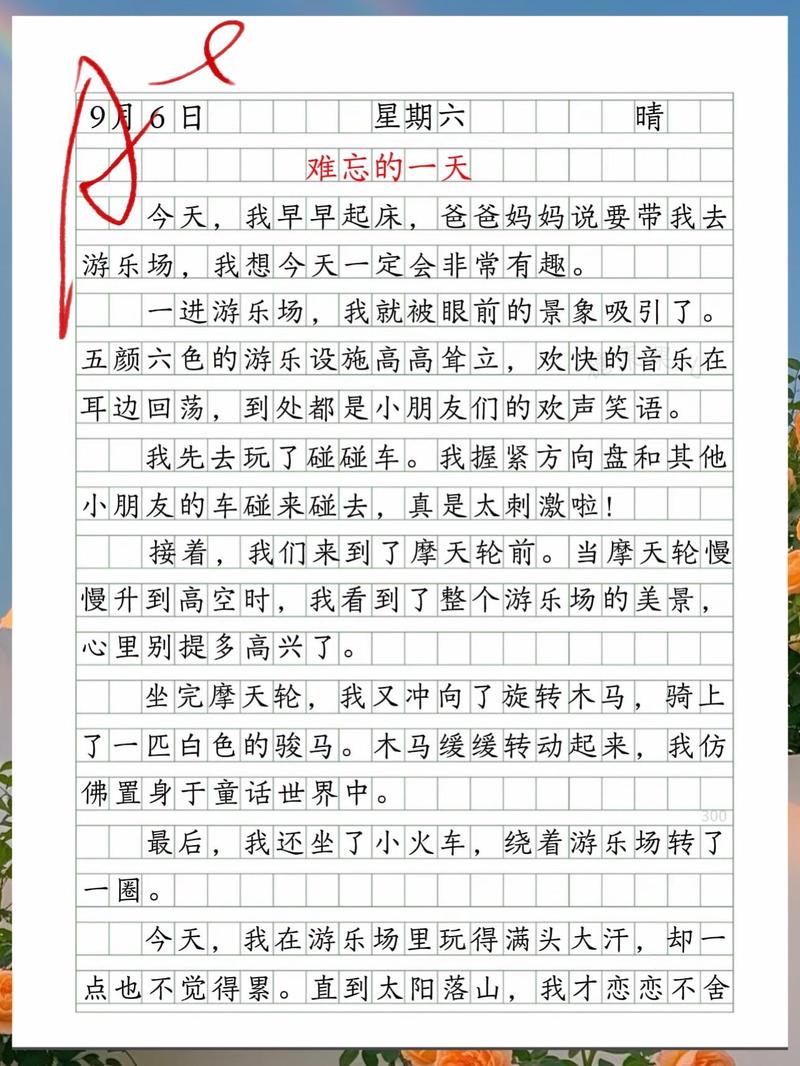 9月6日 星期六 晴
难忘的一天
今天，我早早起床，爸爸妈妈说要带我去
游乐场，我想今天一定会非常有趣。
一进游乐场，我就被眼前的景象吸引了。
五颜六色的游乐设施高高耸立，欢快的音乐在
耳边回荡，到处都是小朋友们的欢声笑语。
我先去玩了碰碰车。我握紧方向盘和其他
小朋友的车碰来碰去，真是太刺激啦！
接着，我们来到了摩天轮前。当摩天轮慢
慢升到高空时，我看到了整个游乐场的美景，
心里别提多高兴了。
坐完摩天轮，我又冲向了旋转木马，骑上
了一匹白色的骏马。木马缓缓转动起来，我仿
佛置身于童话世界中。
300
最后，我还坐了小火车，绕着游乐场转了
一圈。
今天，我在游乐场里玩得满头大汗，却一
点也不觉得累。直到太阳落山，我才恋恋不舍